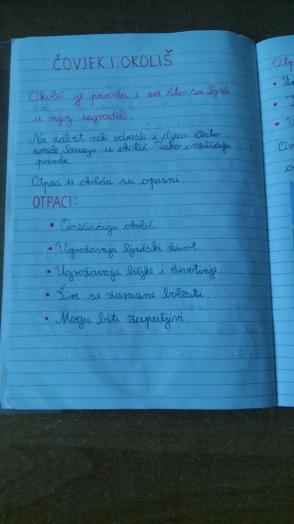 ČOVJEK I OKOLIŠ
Okoliš je priroda i sve što su ljudi
u njoj izgradili.
Na žalost neki odrasli i djeca često
smeće bacaju u okoliš. Tako onečišćuju
prirodu.
Otpaci u okolišu su opasni.
OTPACI:
• Onečišćuju okoliš.
• Ugrožavaju ljudski život.
• Ugrožavaju biljke i životinje.
• Šire se zarazne bolesti.
• Mogu biti zapaljivi.